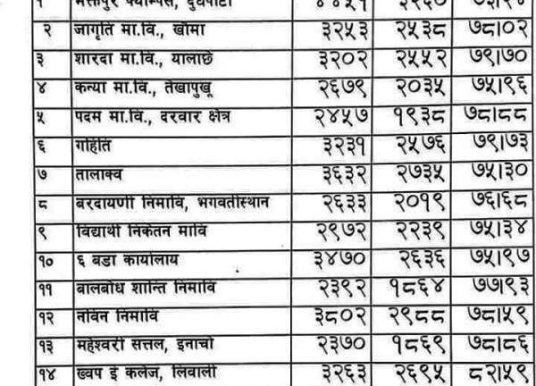 १ भक्तपुर क्याम्पस, दुधपाटी
२ जागृति मा.वि., खौमा ३२५३ २५३८ ७८।०२
३ शारदा मा.वि., यालाछे ३२०२ २५५२ ७९।७०
४ कन्या मा.वि., तेखापुखू २६७९ २०३५ ७५।९६
५ पदम मा.वि., दरवार क्षेत्र २४५७ १९३८ ७८।८८
६ गहिति ३२३१ २५७६ ७९।७३
७ तालाक्व ३६३२ २७३५ ७५।३०
८ बरदायणी निमावि, भगवतीस्थान २६३३ २०१९ ७६।६८
९ विद्यार्थी निकेतन मावि २९७२ २२३९ ७५।३४
१० ६ वडा कार्यालाय ३४७० २६३६ ७५।९७
११ बालबोध शान्ति निमावि २३९२ १८६४ ७७।९३
१२ नविन निमावि ३८०२ २९८८ ७८।५९
१३ महेश्वरी सत्तल, इनाचो २३७० १८६९ ७८।८६
१४ ख्वप ई कलेज, लिवाली ३२६३ २६९५ ८२।५९